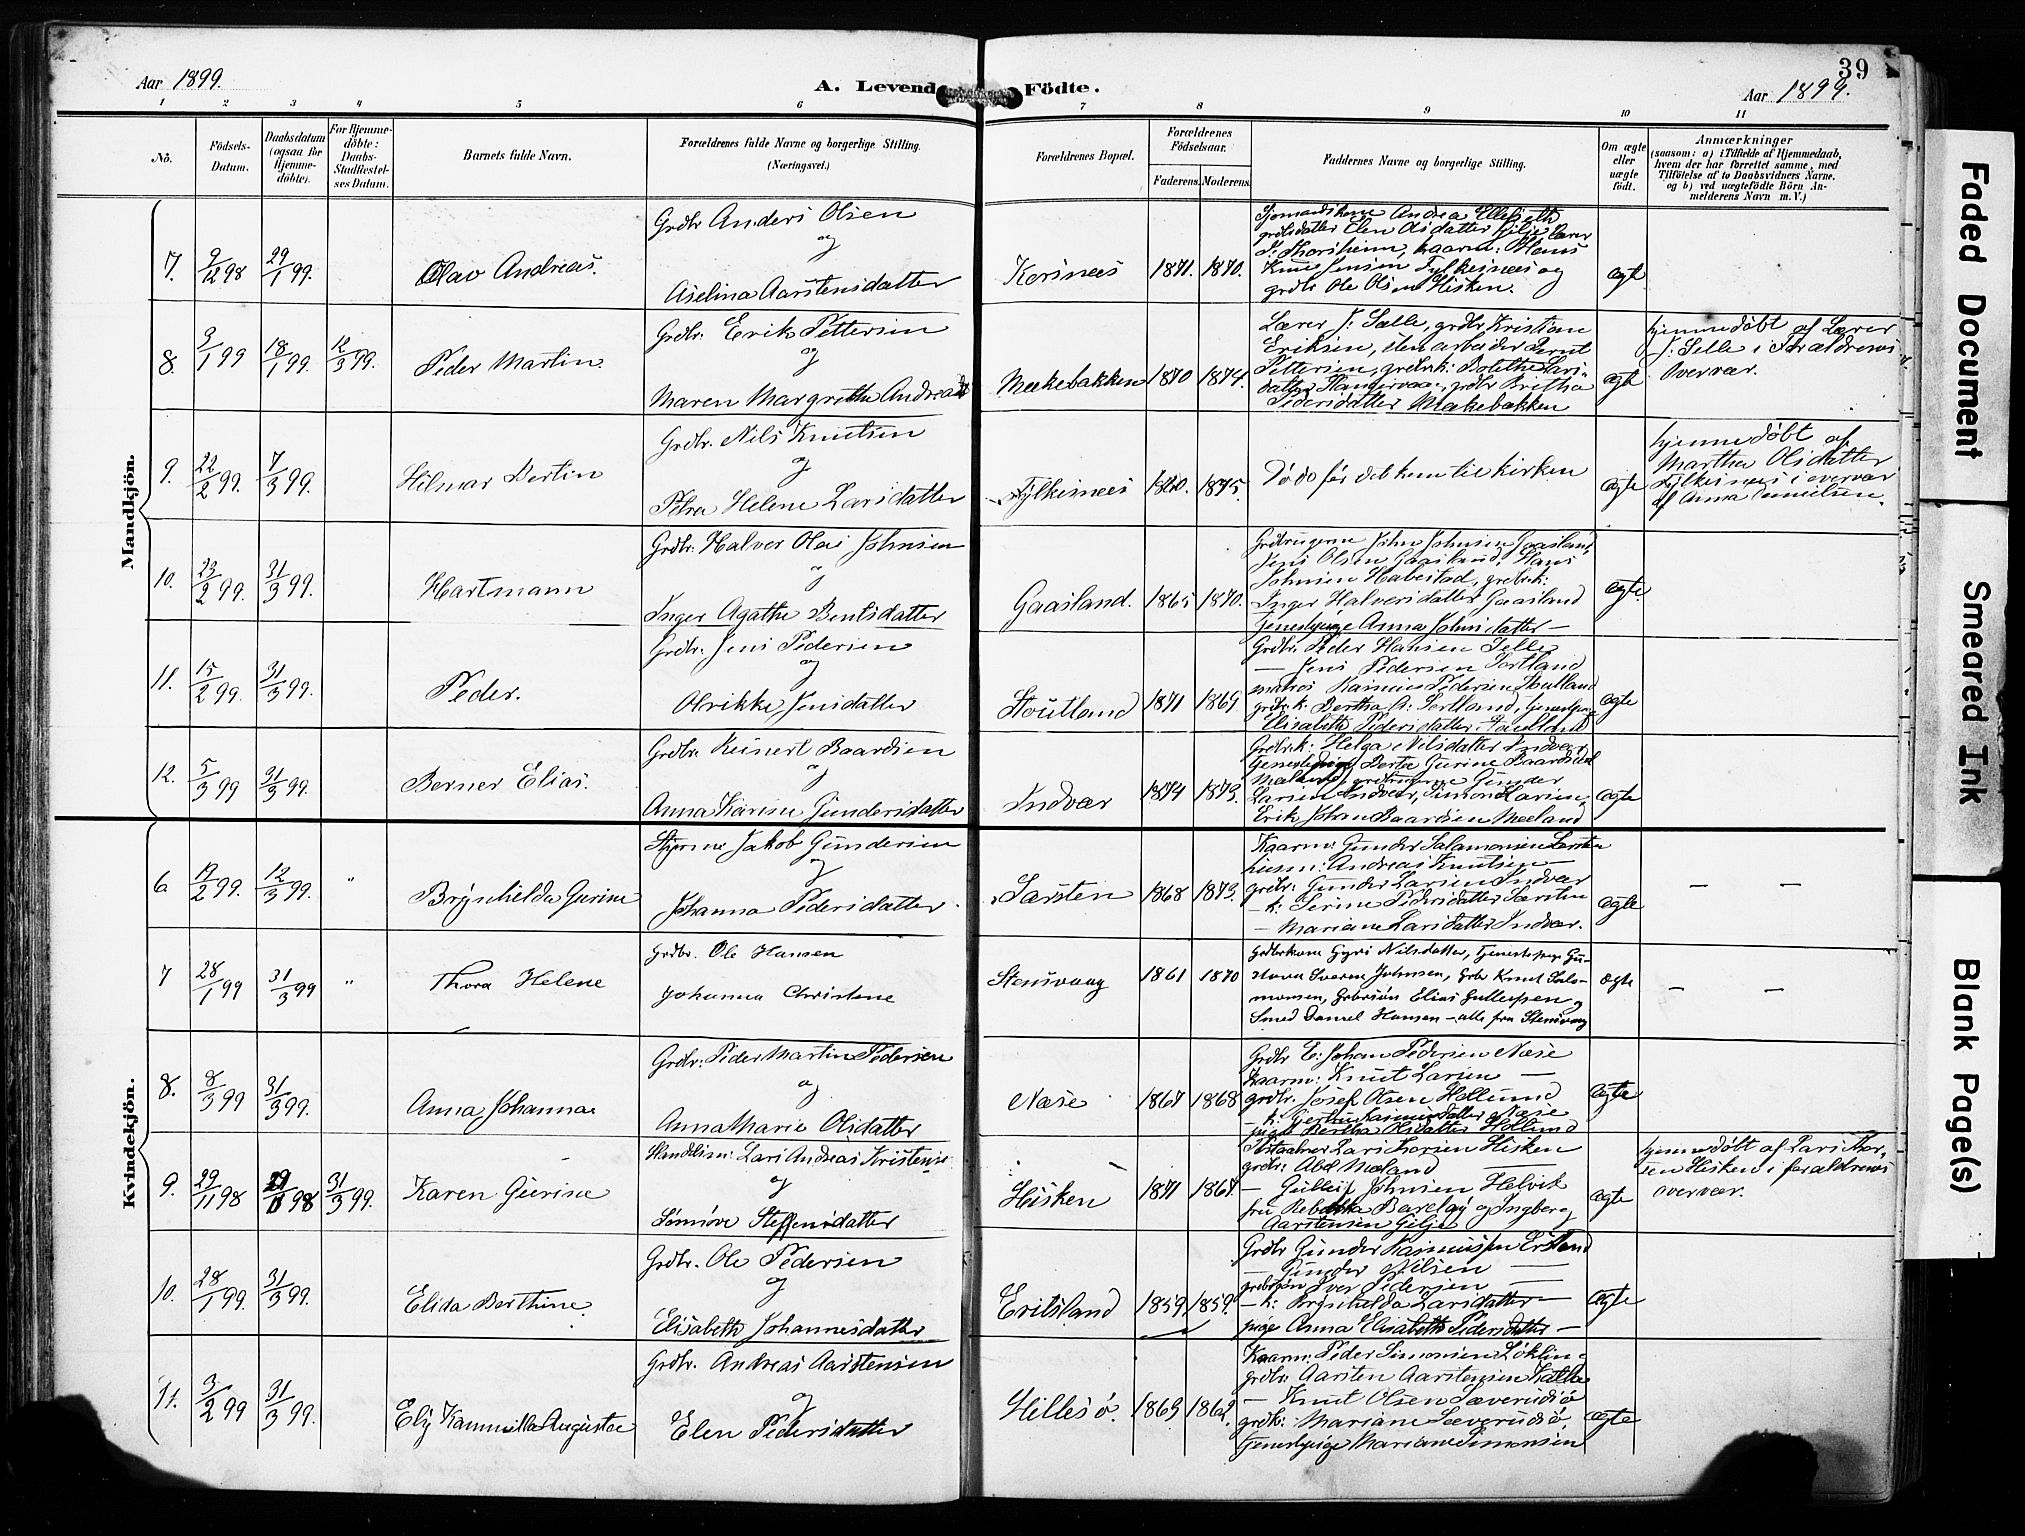 Aar 1899.
A. Levende Födte.
39
Aar 1899.
1 2 3 4 5 6 7 8 9 10 11
No.
Födsels-
Datum.
Daabsdatum
(ogsaa for
Hjemme-
döbte).
For Hjemme-
döbte:
Daabs-
Stadfæstel-
ses Datum.
Barnets fulde Navn.
Forældrenes fulde Navne og borgerlige Stilling.
(Næringsvei.)
Forældrenes Bopæl.
Forældrenes
Födselsaar.
Faderens. Moderens.
Faddernes Navne og borgerlige Stilling.
Om ægte
eller
uægte
födt.
Anmærkninger
(saasom: a) i Tilfælde af Hjemmedaab,
hvem der har forrettet samme, med
Tilföielse af to Daabsvidners Navne.
og b) ved uægtefödte Börn An-
melderens Navn m. V.)
Mandkjön.
7. 9/12 98 29/1 99. Olav Andreas.
Grdbr. Anders Olsen
og
Aselina Aarstensdatter
Korsnees 1871. 1870.
Knut Jensen Fylkesnees og
grdbr Ole Olsen Hisken.
ægte
8. 3/1 99 18/1 99. 12/3 99. Peder Martin.
Grdbr. Erik Pettersen
og
Maren Margrethe Andreasd
Mækebakken 1870 1874.
Lærer J. Sælle, grdbr. Kristian
Eriksen,
Pedersdatter Mækebakken
ægte
hjemmedøbt af Lærer
J. Selle i Forældrenes
Overvær.
9. 22/2 99. 7/3 99. Hilmar Bertin
Grdbr. Nils Knutsen
og
Petra Helene Larsdatter
Fylkesnees 1870. 1875.
Døde før det kom til kirken
ægte
hjemmedøbt af
Martha Olsdatter
Fylkesnees i overvær
af Anna Danielsen.
10. 23/2 99. 31/3 99. Hartmann
Grdbr. Halver Olai Johnsen
og
Inger Agathe Bentsdatter
Gaasland. 1865 1870.
Grdbrugerne John Johnsen Gaasland,
Jens Olsen Gaasland, Hans
Johnsen Habestad, grdbrk:
Inger Halversdatter Gaasland
Tjenestpige Anna Johnsdatter —
ægte.
11. 15/2 99. 31/3 99. Peder.
Grdbr. Jens Pedersen
og
Olrikke Jensdatter
Stoutland 1871 1869
Grdbr. Peder Hansen Selle
— Jens Pedersen Tortland
matros Rasmus Pedersen Stoutland
grdbr. k: Bertha A. Tortland, Tjenestpige
Elisabeth Pedersdatter Stoutland
ægte
12. 5/3 99 31/3 99. Berner Elias.
Grdbr. Reinert Baardsen
og
Anna Karine Gundersdatter
Indvær 1874 1873.
Grdbr. k: Helga Nilsdatter Indvær,
Tjenestepige Berta Gurine Baardsdtr
Mæland, grdbrugerne Gunder
Larsen Indvær, Simon Larsen,
Erik Johan Baardsen Mæland
ægte
Kvindekjön.
6 17/2 99. 12/3 99. " Brynhilda Gurine
Styrm: Jakob Gundersen
og
Johanna Pedersdatter.
Sarsten 1868 1873.
Kaarm: Gunder Salamonsen Sarsten
husm: Andreas Knutsen —
grdbr: Gunder Larsen Indvær
— k: Serine Pedersdatter Sarsten
— Mariane Larsdatter Indvær.
ægte — —
7 28/1 99 31/3 99 " Thora Helene
Grdbr. Ole Hansen
Johanna Christene
Stensvaag 1861 1870
Grdbrkone Gyri Nilsdatter, Tjenestepige Gu-
stava Sverine Johnsen, Grdbr Knut Salo-
monsen, Grdbrsøn Elias Gullaksen og
Smed Daniel Hansen — alle fra Stensvaag
ægte — —
8. 8/3 99 31/3 99. Anna Johanna
Grdbr: Peder Martin Pedersen
og
Anna Marie Olsdatter
Næse 1867 1868
Grdbr E: Johan Pedersen Næse
Kaarm: Knut Larsen —
grdbr: Josef Olsen Hollund
— k: Gertrud Rasmusdatter Næse
pige Bertha Olsdatter Hollund
ægte
9. 29/11 98 98 31/3 99. Karen Gurine
Handelsm: Lars Andreas Kristensen
og
Sønnöve Steffensdatter
Hisken 1871 1867.
Lars Thorsen Hisken
grdbr: Abel Mæland —
— Gulleif Johnsen Helvik
fru Rebekka Barclay og Ingberg
Aarstensen Gilje
ægte
hjemmedøbt af Lars Thor-
sen Hisken i forældrenes
overvær.
10. 28/1 99. 31/3 99. Elida Berthine
Grdbr. Ole Pedersen
og
Elisabeth Johannesdatter
Eritsland 1859 1859.
Grdbr Gunder Rasmussen Eritsland
— Gunder Nilsen —
grdbrsøn Iver Pedersen —
— k: Brynhilda Larsdatter —
pige Anna Elisabeth Pedersdatter —
ægte
11. 3/2 99 31/3 99. Ely Kammilla Augusta
Grdbr. Andreas Aarstensen
og
Elen Pedersdatter
Hillesø. 1863 1862.
Kaarm: Peder Simonsen Løkling
grdbr: Aarsten Aarstensen Kalle
— Knut Olsen Sæverudsiø
grdk: Mariane Sæverudsiø,
Tjenestpige Mariane Simonsen
ægte
Faded Document
Smeared Ink
Blank Page(s)